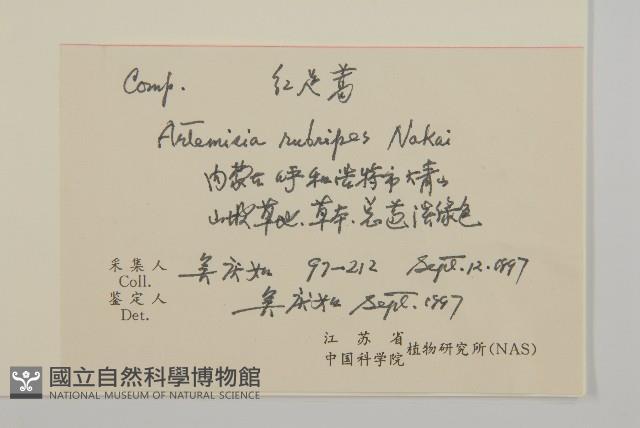 Comp. 红足蒿
Artemisia rubripes Nakai
内蒙古 呼和浩特市大青山
山坡草地.草本.总苞淡绿色
采集人 Coll. 吴庆如 97-212 Sept.12.1997
鉴定人 Det. 吴庆如 Sept.1997
江苏省
中国科学院 植物研究所(NAS)
國立自然科學博物館
NATIONAL MUSEUM OF NATURAL SCIENCE